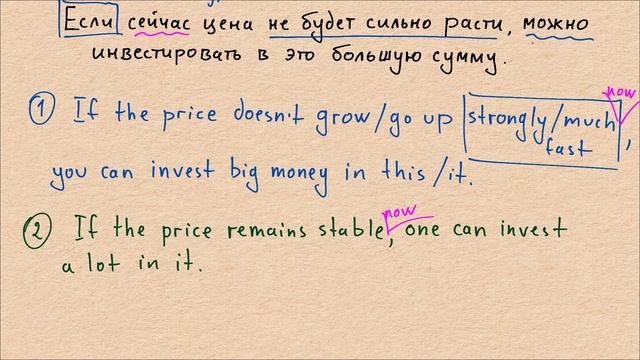 Если сейчас цена не будет сильно расти, можно
инвестировать в это большую сумму.
now
1 If the price doesn't grow/go up strongly/much,
fast
you can invest big money in this/it.
now
2 If the price remains stable, one can invest
a lot in it.